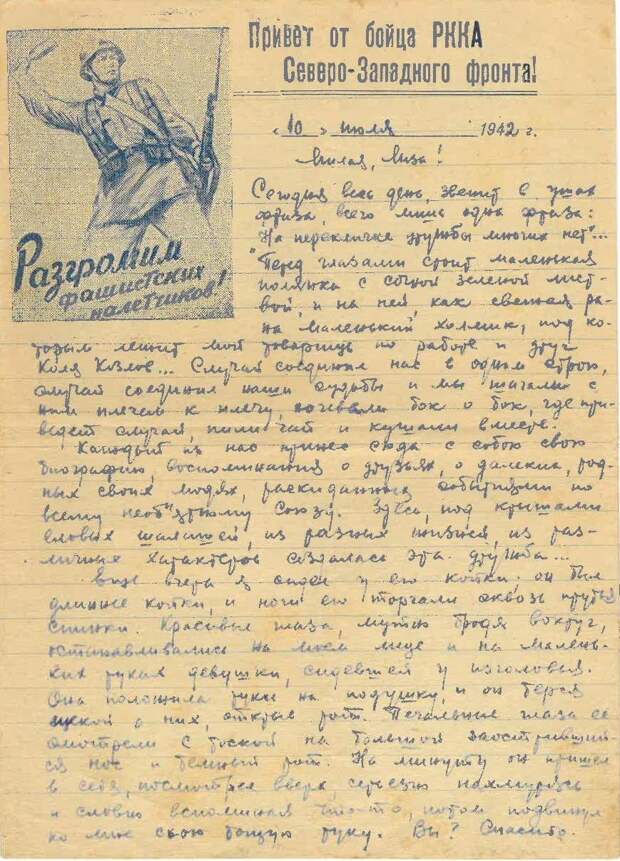 Привет от бойца РККА
Северо-Западного фронта!
Разгромим
фашистских
налетчиков!
„10" июля 1942 г.
Милая, Лиза!
Сегодня весь день, звенит в ушах
фраза, всего лишь одна фраза:
"На перекличке дружбы многих нет"...
Перед глазами стоит маленькая
полянка с сочной зеленой лист-
вой, и на ней как свежая ра-
на маленький холмик, под ко-
торым лежит мой товарищ по работе и друг
Коля Козлов... Случай соединил нас в одном строю,
случай соединил наши судьбы и мы шагали с
ним плечом к плечу, ночевали бок о бок, где при-
ведет случай, пили чай и кушали вместе.
Каждый из нас принес сюда с собою свою
биографию, воспоминания о друзьях, о далеких, род-
ных своих людях, раскиданных событиями по
всему необъятному Союзу. Здесь, под крышами
еловых шалашей, из разных жизней, из раз-
личных характеров создалась эта дружба...
Еще вчера я сидел у его койки; он был
длиннее койки, и ноги его торчали сквозь прутья
спинки. Красивые глаза, мутно бродя вокруг,
останавливались на моем лице и на малень-
ких руках девушки, сидевшей у изголовья.
Она положила руки на подушку, и он терся
щекой о них, открыв рот. Печальные глаза её
смотрели с тоской на большой заостривший
ся нос и темный рот. На минуту он пришел
в себя, посмотрел вверх, серьезно нахмурясь
и словно вспоминая что-то, потом подвинул
ко мне свою тощую руку. Вы? Спасибо.